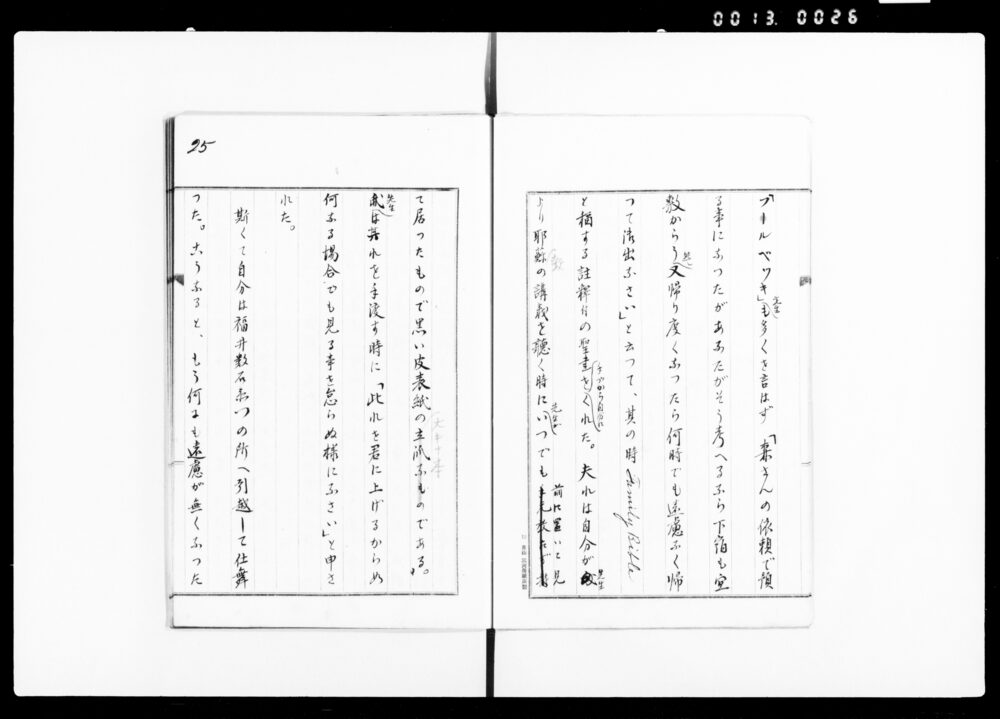 0013. 0026
「ブールベツキ」先生も多くを言はず「森さんの依頼で預
る事になつたがあなたがそう考へるなら下宿も宜
敷からう然し又帰り度くなつたら何時でも遠慮なく帰
つて御出なさい」と云つて、其の時 Family Bible
と稱する註釋付の聖書を手づから自分にくれた。夫れは自分が先生
より耶蘇教の講義を聽く時に先生がいつでも前に置いて見
て居つたもので黒い皮表紙の大キナ本立派なものである。
先生は其れを手渡す時に「此れを君に上げるからぬ
何なる場合でも見る事を怠らぬ様になさい」と申さ
れた。
斯くて自分は福井数右衛門の所へ引越して仕舞
つた。こうなると、もう何にも遠慮が無くなつた
25